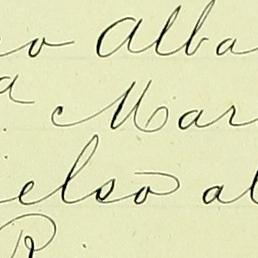 co Alba
a Mar
ielso al
R